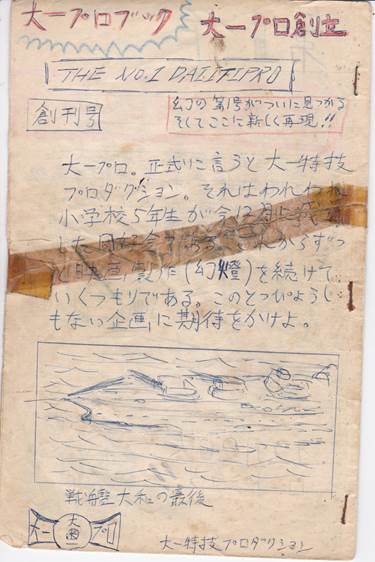 大一プロブック 大一プロ創立
THE NO.1 DAIITIPRO
創刊号
幻の第1号がついに見つかる
そしてここに新しく再現!!
大一プロ。正式に言うと大一特技
プロダクション。それはわれわれ
小学校5年生が今12月に
した同好会である。これからずっ
と映画製作(幻燈)を続けて
いくつもりである。このとっぴょうし
もない企画に期待をかけよ。
戦艦大和の最後
大一 プロ
大一特技プロダクション